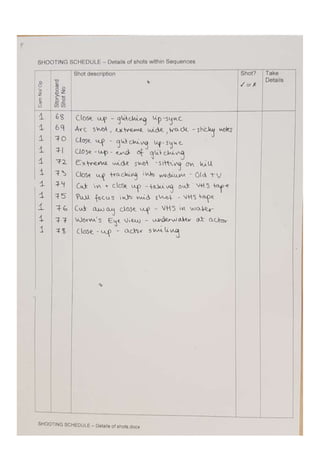 SHOOTING SCHEDULE – Details of shots within Sequences
Cam No/ Op Storyboard Shot No Shot description Shot? ✓ or ✗ Take Details
1 68 Close up - glitching lip-sync
1 69 Arc shot, extreme wide, track - sticky notes
1 70 Close up - glitching lip-sync
1 71 Close-up - end of glitching
1 72 Extreme wide shot - sitting on hill
1 73 Close up tracking into medium - Old TV
1 74 Cut in + close up - taking out VHS tape
1 75 Pull focus into mid shot - VHS tape
1 76 Cut away close up - VHS in water
1 77 Worm's Eye View - underwater at actor
1 78 Close-up - actor smiling
SHOOTING SCHEDULE – Details of shots.docx